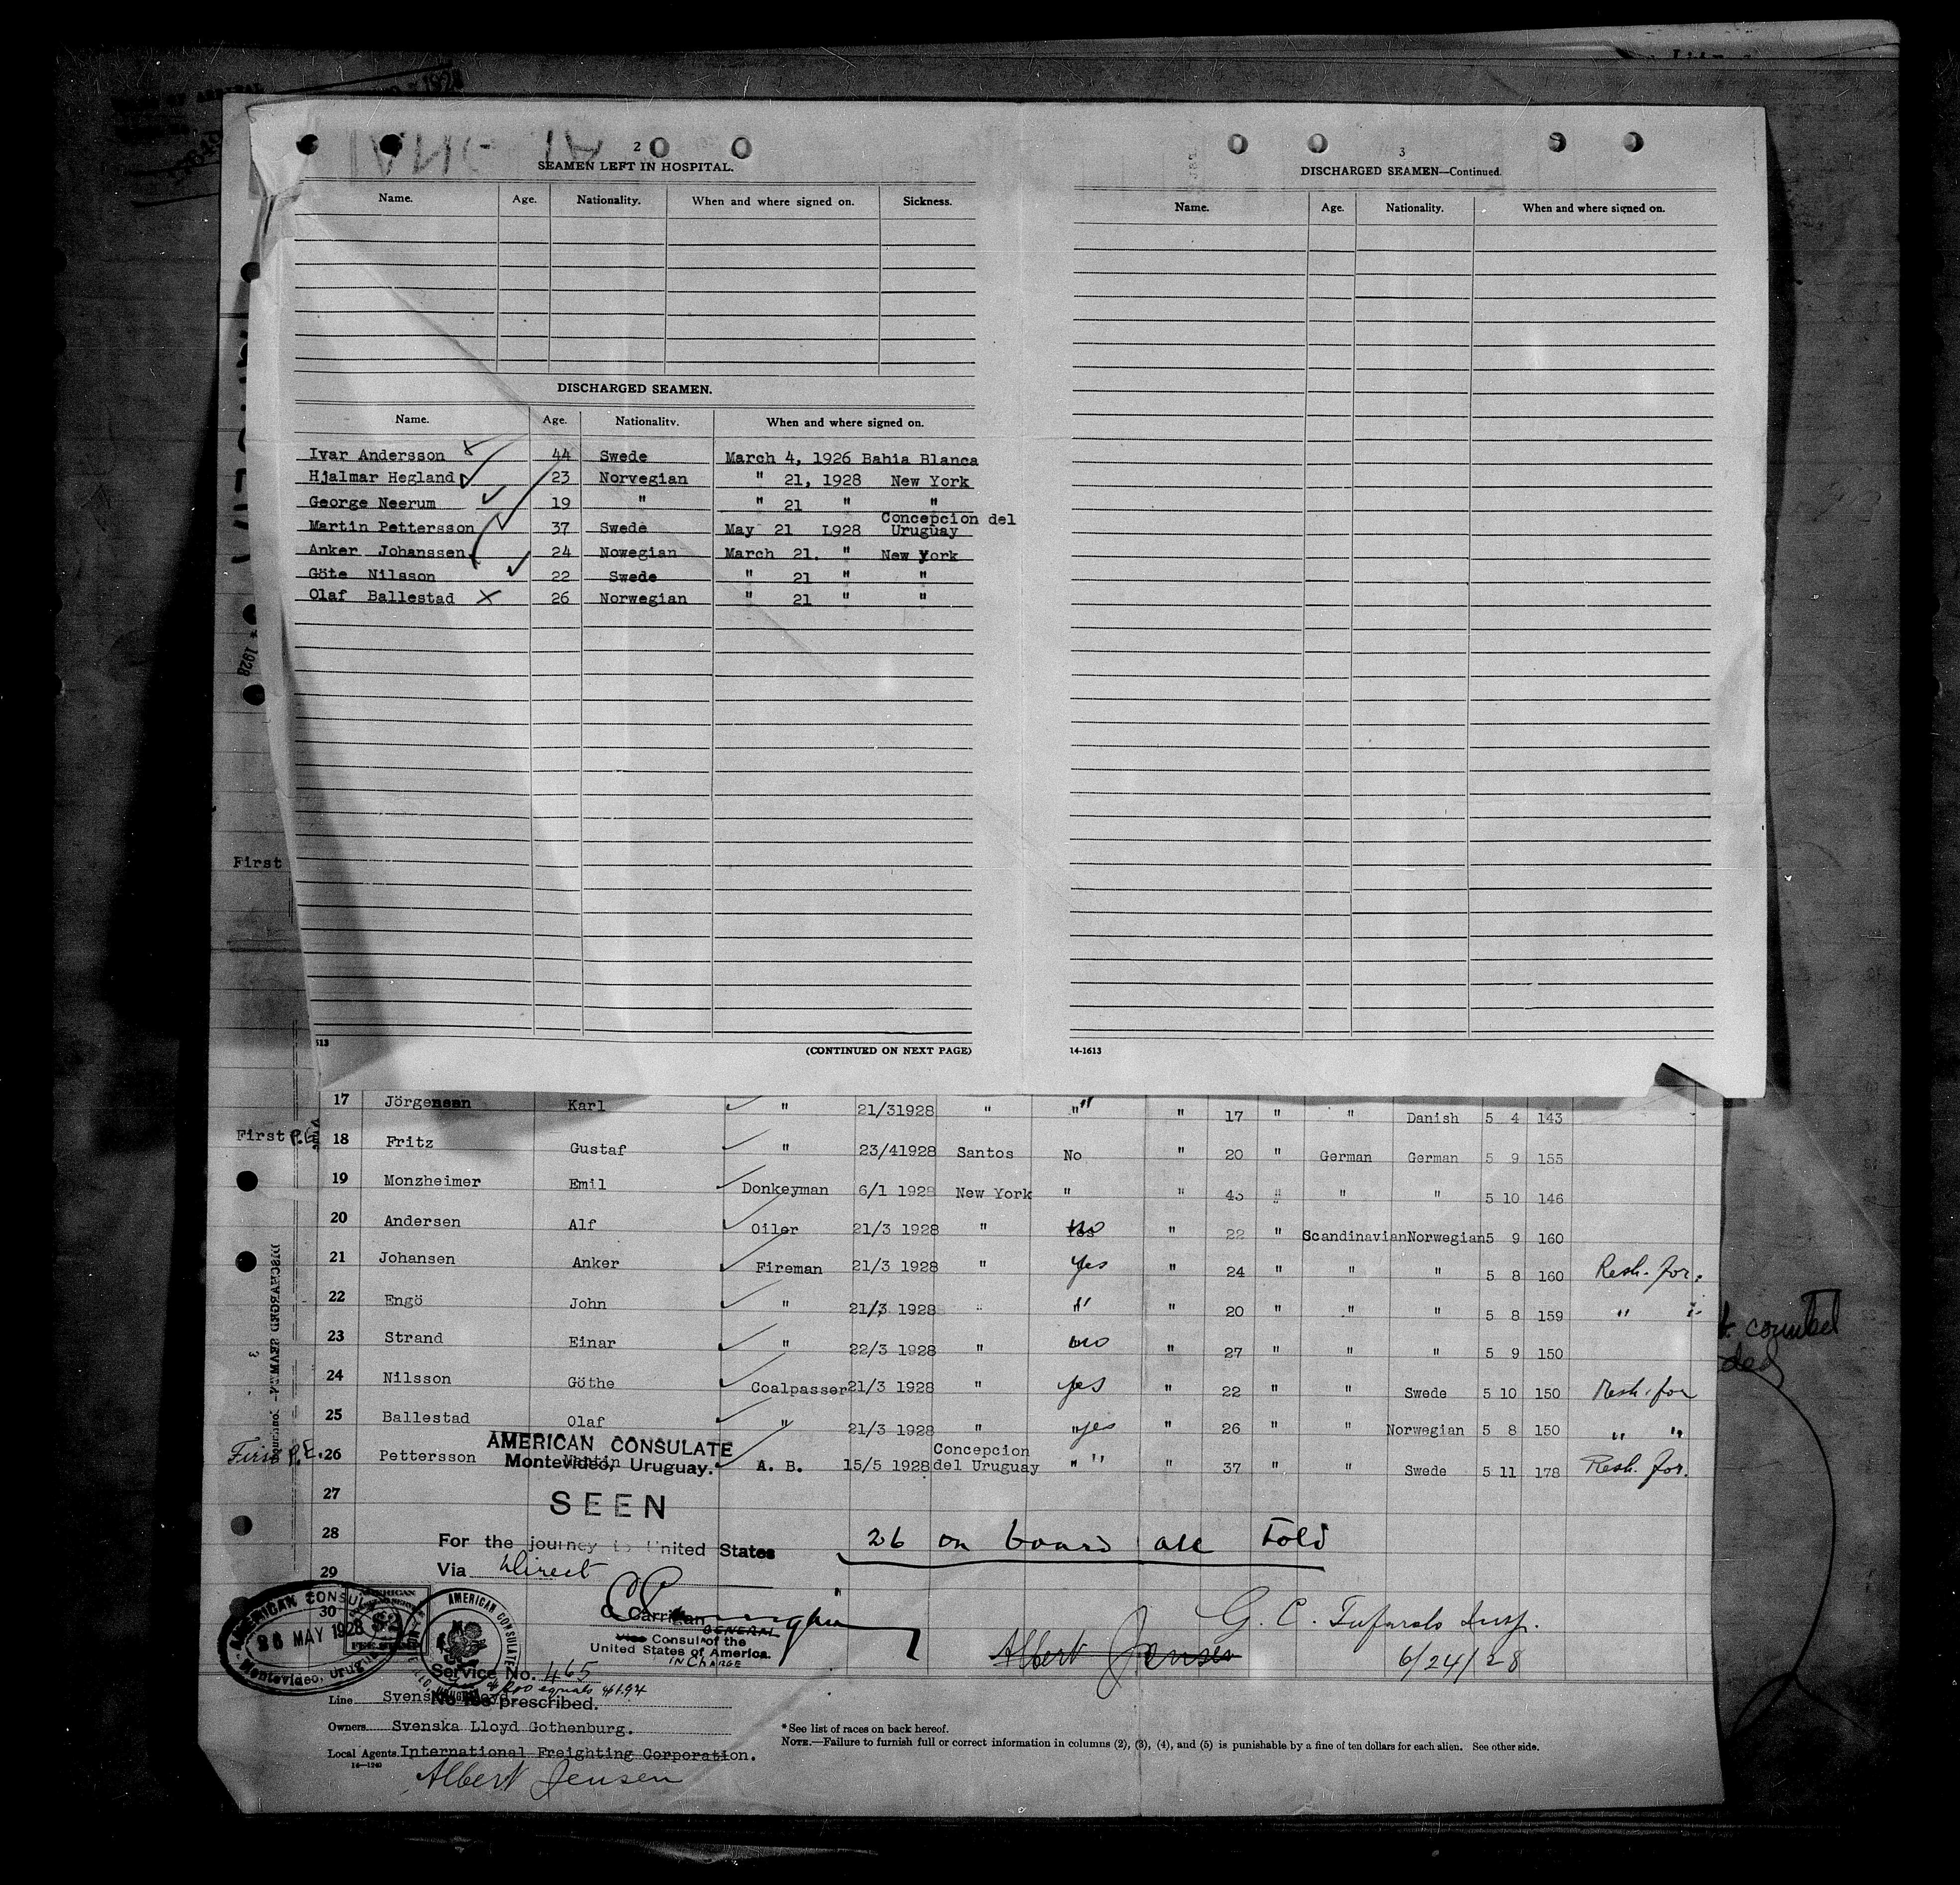 2
SEAMEN LEFT IN HOSPITAL.
Name. Age. Nationality. When and where signed on. Sickness.
DISCHARGED SEAMEN.
Name. Age. Nationality. When and where signed on.
Ivar Andersson 44 Swede March 4, 1926 Bahia Blanca
Hjalmar Hegland 23 Norvegian " 21, 1928 New York
George Neerum 19 " " 21 " "
Martin Pettersson 37 Swede May 21 1928 Concepcion del Uruguay
Anker Johanssen 24 Nowegian March 21. " New York
Göte Nilsson 22 Swede " 21 " "
Olaf Ballestad 26 Norwegian " 21 " "
(CONTINUED ON NEXT PAGE)
3
DISCHARGED SEAMEN—Continued.
Name. Age. Nationality. When and where signed on.
14-1613
First
17 Jörgensen Karl " 21/31928 " " " 17 " " Danish 5 4 143
First P.E. 18 Fritz Gustaf " 23/41928 Santos No " 20 " German German 5 9 155
19 Monzheimer Emil Donkeyman 6/1 1928 New York " " 43 " " " 5 10 146
20 Andersen Alf Oiler 21/3 1928 " No " 22 " Scandinavian Norwegian 5 9 160
21 Johansen Anker Fireman 21/3 1928 " Yes " 24 " " " 5 8 160 Resh. for.
22 Engö John " 21/3 1928 " " " 20 " " " 5 8 159 " "
23 Strand Einar " 22/3 1928 " no " 27 " " " 5 9 150
24 Nilsson Göthe Coalpasser 21/3 1928 " yes " 22 " " Swede 5 10 150 Resh. for
25 Ballestad Olaf " 21/3 1928 " " yes " 26 " " Norwegian 5 8 150 " "
First P.E. 26 Pettersson Martin A. B. 15/5 1928 Concepcion del Uruguay " " " 37 " " Swede 5 11 178 Resh. for.
AMERICAN CONSULATE
Montevideo, Uruguay.
27
SEEN
28
For the journey to United States
26 on board all told
Via Direct
29
30
AMERICAN CONSUL
26 MAY 1928
Montevideo, Uruguay
AMERICAN CONSULATE
C. Carrigan
GENERAL
Vice Consul of the
United States of America.
IN CHARGE
Albert Jensen
6/24/28
Service No. 465
No fee prescribed.
Line Svenska Lloyd
Owners Svenska Lloyd Gothenburg.
Local Agents International Freighting Corporation.
14—1240
Albert Jensen
*See list of races on back hereof.
NOTE.—Failure to furnish full or correct information in columns (2), (3), (4), and (5) is punishable by a fine of ten dollars for each alien. See other side.
DISCHARGED SEAMEN
3
1928